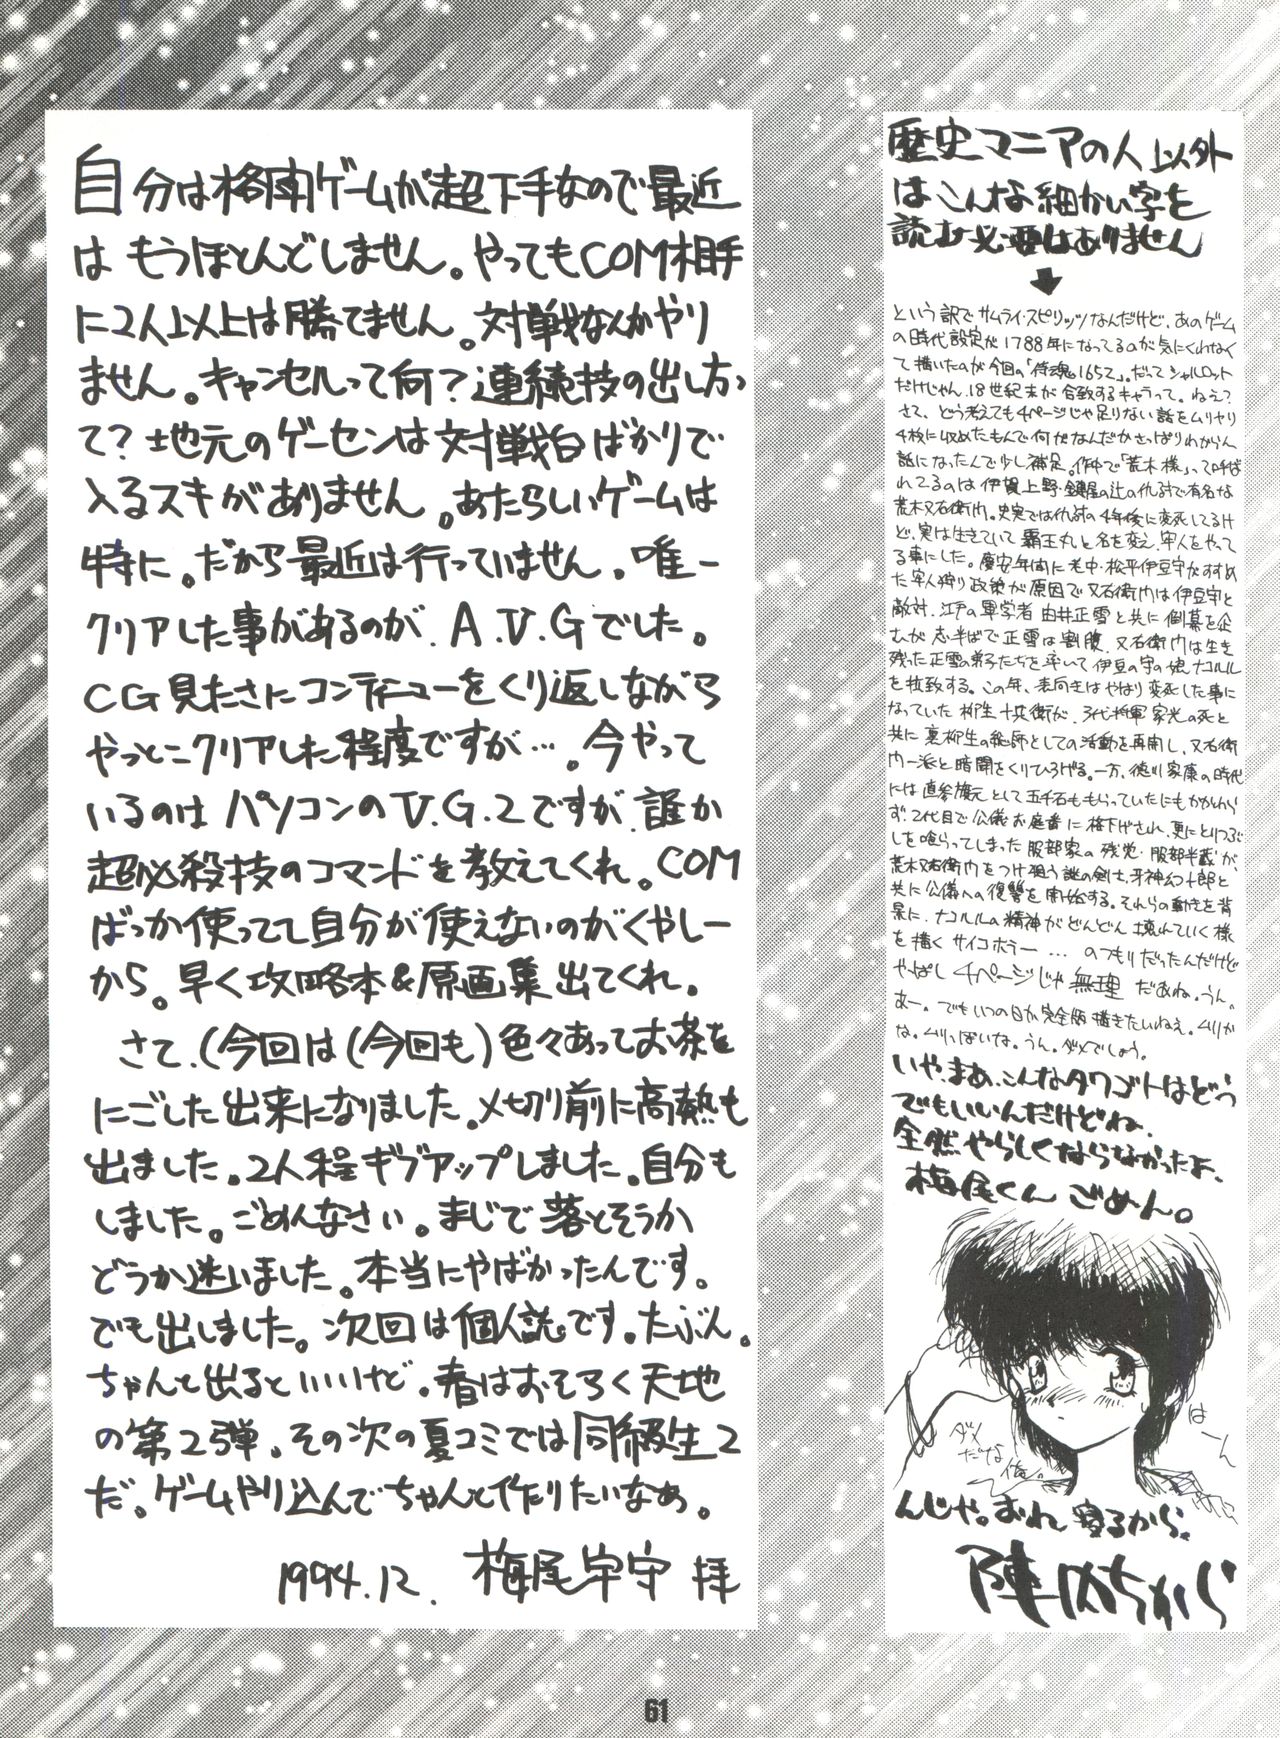 自分は格闘ゲームが超下手なので最近
は もうほとんどしません。やってもCOM相手
に2人以上は勝てません。対戦なんかやり
ません。キャンセルって何？連続技の出し方っ
て？地元のゲーセンは対戦台ばかりで
入るスキがありません。あたらしいゲームは
特に。だから最近は行っていません。唯一
クリアした事があるのが、A.V.Gでした。
CG見たさにコンティニューをくり返しながら
やっとこクリアした程度ですが…。今やって
いるのは パソコンのV.G.2ですが、誰か
超必殺技のコマンドを教えてくれ。COM
ばっか使ってて自分が使えないのがくやしー
から。早く攻略本&原画集出てくれ。
さて、(今回は(今回も)色々あってお茶を
にごした出来になりました。〆切り前に高熱も
出ました。2人程ギブアップしました。自分も
しました。ごめんなさい。まじで落とそうか
どうか迷いました。本当にやばかったんです。
でも出しました。次回は個人誌です。たぶん。
ちゃんと出るといいけど。春はおそらく天地
の第2弾、その次の夏コミでは同級生2
だ。ゲームやり込んでちゃんと作りたいなぁ。
1994.12. 梅尾宇守 拝
歴史マニアの人以外
は こんな細かい字を
読む必要はありません
という訳でサムライ・スピリッツなんだけど、あのゲーム
の時代設定が1788年になってるのが気にくわなく
て描いたのが今回の「侍魂1652」。だってシャルロット
だけじゃん、18世紀末が合致するキャラって。ねぇ？
さて、どう考えても4ページじゃ足りない話をムリヤリ
4枚に収めたもんで何がなんだかさっぱりわからん
話になったんで少し補足。作中で「荒木様」って呼ば
れてるのは伊賀上野・鍵屋の辻の仇討で有名な
荒木又右衛門。史実では仇討の4年後に変死してるけ
ど、実は生きていて覇王丸と名を変え、牢人をやって
る事にした。慶安年間に老中・松平伊豆守がすすめ
た牢人狩り政策が原因で又右衛門は伊豆守と
敵対、江戸の軍学者 由井正雪と共に倒幕を企
むが志半ばで正雪は割腹、又右衛門は生き
残った正雪の弟子たちを率いて伊豆の守の娘、ナコルル
を拉致する。この年、表向きはやはり変死した事に
なっていた 柳生十兵衛が、3代将軍家光の死と
共に裏柳生の総師としての活動を再開し、又右衛
門一派と暗闘をくりひろげる。一方、徳川家康の時代
には直参旗元として五千石ももらっていたにもかかわら
ず、2代目で公儀お庭番に格下げされ、更にとりつぶ
しを喰らってしまった 服部家の残党・服部半蔵が、
荒木又右衛門をつけ狙う謎の剣士、牙神幻十郎と
共に公儀への復讐を開始する。それらの動きを背
景に、ナコルルの精神がどんどん壊れていく様
を描くサイコホラー … のつもりだったんだけど
やっぱし 4ページじゃ無理だあね。うん。
あー。でもいつの日か完全版描きたいねえ。ムリか
な。ムリっぽいな。うん。ダメでしょう。
いや、まぁ、こんなタワゴトはどう
でもいいんだけどね、
全然やらしくならなかったよ、
梅尾くん ごめん。
ダメ
だな
俺。
はーん
んじゃ。おれ 寝るから。
61